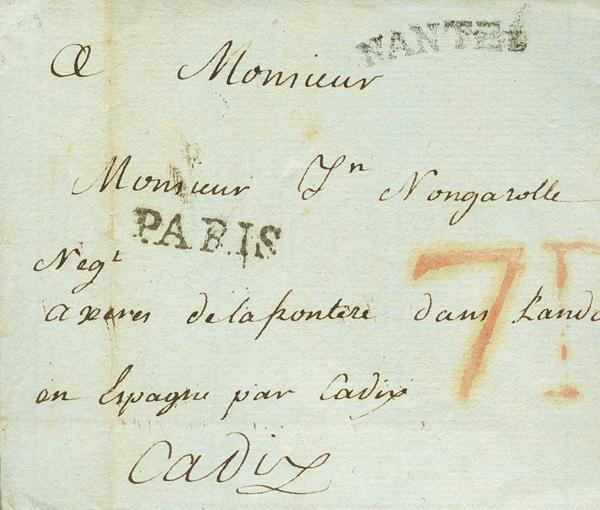 NANTES
A Monsieur
Monsieur Jn Nongarolle
PARIS
Negt
axeres delafrontere dans Lando
7
en Espagne par Cadix
Cadix